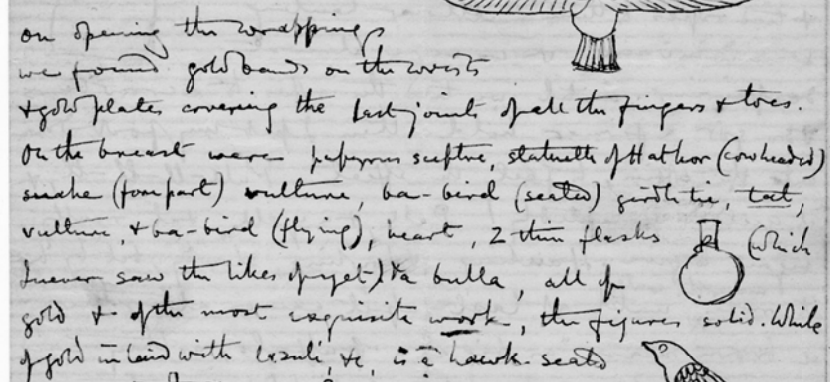 on opening the wrappings
we found gold bands on the wrists
& gold plates covering the last joints of all the fingers & toes.
On the breast were papyrus sceptre, statuette of Hathor (cowheaded)
snake (forepart) vulture, ba-bird (seated) girdle tie, tat,
vulture, & ba-bird (flying), heart, 2 thin flasks (which
I never saw the likes of yet) & a bulla, all of
gold & of the most exquisite work, the figures solid. While
of gold inlaid with lazuli, &c, is a hawk- seated